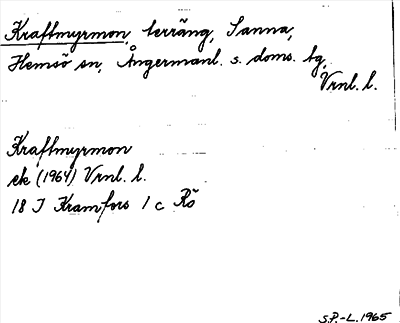 Kraftmyrmon, terräng, Sanna,
Hemsö sn, Ångermanl. s. doms. tg,
Vrnl. l.
Kraftmyrmon
ek (1964) Vrnl. l.
18 J Kramfors 1 c Rö
S.P.-L. 1965